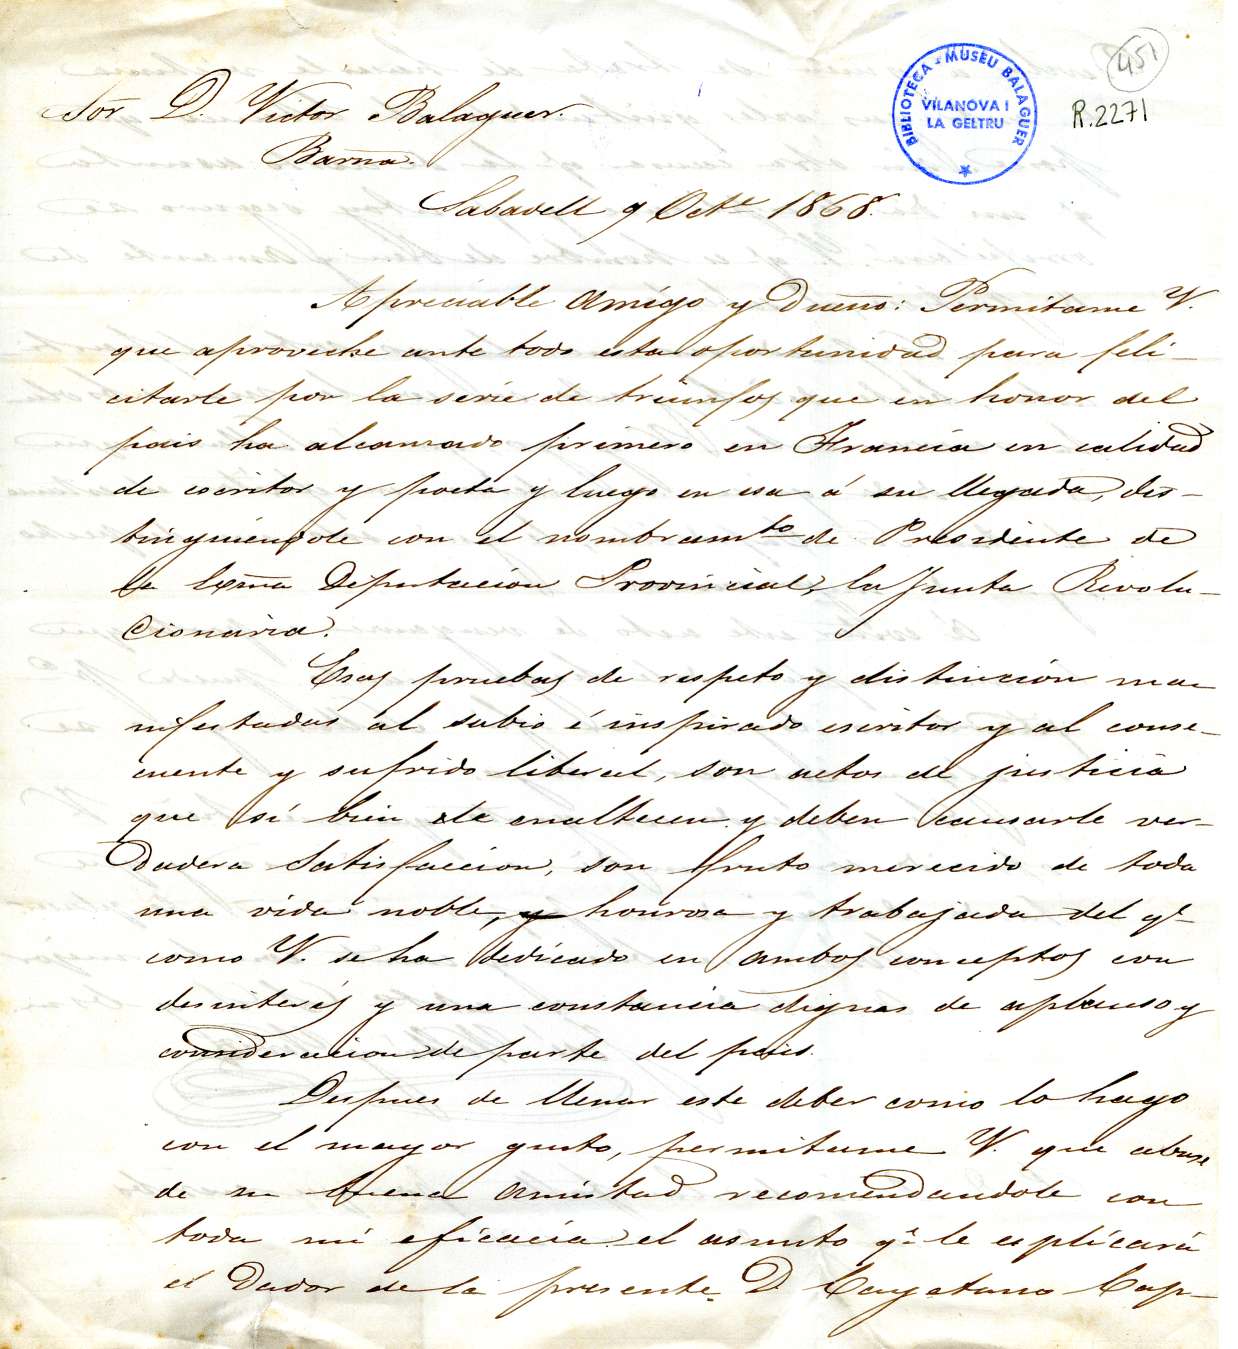 451
R.2271
BIBLIOTECA - MUSEU BALAGUER
VILANOVA I
LA GELTRU
Sor D. Victor Balaguer.
Barna.
Sabadell 9 Octe 1868.
Apreciable amigo y Dueño: Permitame V.
que aproveche ante todo esta oportunidad para feli-
citarle por la serie de triunfos que en honor del
pais ha alcanzado primero en Francia en calidad
de escritor y poeta y luego en esa á su llegada, des-
tinguiéndole con el nombramto de Presidente de
la Exma Deputacion Provincial, la Junta Revolu-
cionaria.
Esas pruebas de respeto y distincion ma-
nifestadas al sabio é inspirado escritor y al conse-
cuente y sufrido liberal, son actos de justicia
que si bien le enaltecen y deben causarle ver-
dadera satisfaccion, son fruto merecido de toda
una vida noble, y honrosa y trabajada del qe
como V. se ha dedicado en ambos conceptos con
desinterés y una constancia dignas de aplauso y
consideracion de parte del pais.
Despues de llenar este deber como lo hago
con el mayor gusto, permitame V. que abuse
de su buena amistad recomendandole con
toda mi eficacia el asunto qe le esplicará
el Dador de la presente D. Cayetano Cap-